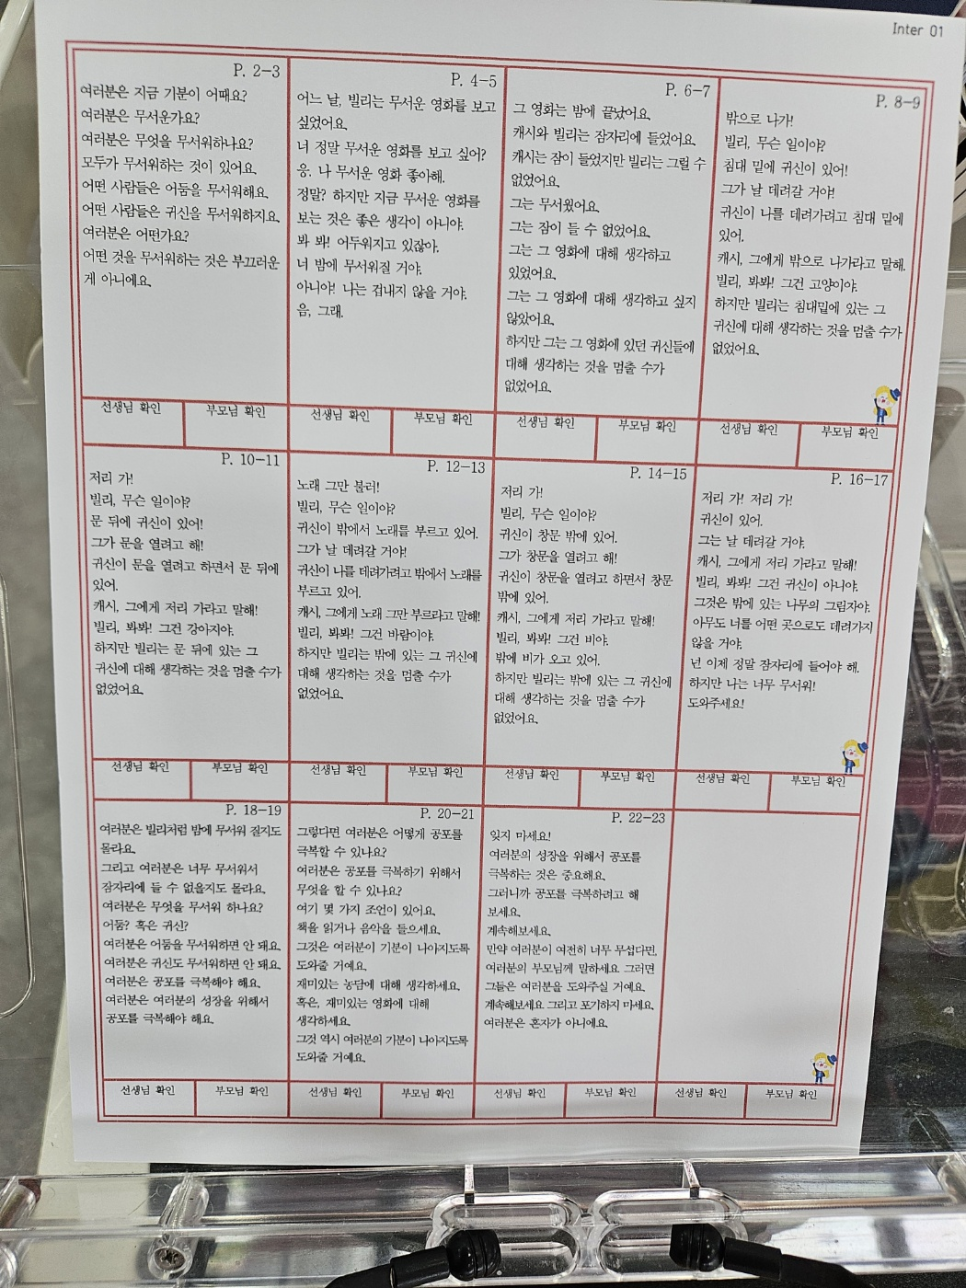 Inter 01
P. 2-3
여러분은 지금 기분이 어때요?
여러분은 무서운가요?
여러분은 무엇을 무서워하나요?
모두가 무서워하는 것이 있어요.
어떤 사람들은 어둠을 무서워해요.
어떤 사람들은 귀신을 무서워하지요.
여러분은 어떤가요?
어떤 것을 무서워하는 것은 부끄러운
게 아니에요.
선생님 확인 부모님 확인
P. 4-5
어느 날, 빌리는 무서운 영화를 보고
싶었어요.
너 정말 무서운 영화를 보고 싶어?
응, 나 무서운 영화 좋아해.
정말? 하지만 지금 무서운 영화를
보는 것은 좋은 생각이 아니야.
봐 봐! 어두워지고 있잖아.
너 밤에 무서워질 거야.
아니야! 나는 겁내지 않을 거야.
음, 그래.
선생님 확인 부모님 확인
P. 6-7
그 영화는 밤에 끝났어요.
캐시와 빌리는 잠자리에 들었어요.
캐시는 잠이 들었지만 빌리는 그럴 수
없었어요.
그는 무서웠어요.
그는 잠이 들 수 없었어요.
그는 그 영화에 대해 생각하고
있었어요.
그는 그 영화에 대해 생각하고 싶지
않았어요.
하지만 그는 그 영화에 있던 귀신들에
대해 생각하는 것을 멈출 수가
없었어요.
선생님 확인 부모님 확인
P. 8-9
밖으로 나가!
빌리, 무슨 일이야?
침대 밑에 귀신이 있어!
그가 날 데려갈 거야!
귀신이 나를 데려가려고 침대 밑에
있어.
캐시, 그에게 밖으로 나가라고 말해.
빌리, 봐봐! 그건 고양이야.
하지만 빌리는 침대밑에 있는 그
귀신에 대해 생각하는 것을 멈출 수가
없었어요.
선생님 확인 부모님 확인
P. 10-11
저리 가!
빌리, 무슨 일이야?
문 뒤에 귀신이 있어!
그가 문을 열려고 해!
귀신이 문을 열려고 하면서 문 뒤에
있어.
캐시, 그에게 저리 가라고 말해!
빌리, 봐봐! 그건 강아지야.
하지만 빌리는 문 뒤에 있는 그
귀신에 대해 생각하는 것을 멈출 수가
없었어요.
선생님 확인 부모님 확인
P. 12-13
노래 그만 불러!
빌리, 무슨 일이야?
귀신이 밖에서 노래를 부르고 있어.
그가 날 데려갈 거야!
귀신이 나를 데려가려고 밖에서 노래를
부르고 있어.
캐시, 그에게 노래 그만 부르라고 말해!
빌리, 봐봐! 그건 바람이야.
하지만 빌리는 밖에 있는 그 귀신에
대해 생각하는 것을 멈출 수가
없었어요.
선생님 확인 부모님 확인
P. 14-15
저리 가!
빌리, 무슨 일이야?
귀신이 창문 밖에 있어.
그가 창문을 열려고 해!
귀신이 창문을 열려고 하면서 창문
밖에 있어.
캐시, 그에게 저리 가라고 말해!
빌리, 봐봐! 그건 비야.
밖에 비가 오고 있어.
하지만 빌리는 밖에 있는 그 귀신에
대해 생각하는 것을 멈출 수가
없었어요.
선생님 확인 부모님 확인
P. 16-17
저리 가! 저리 가!
귀신이 있어.
그는 날 데려갈 거야.
캐시, 그에게 저리 가라고 말해!
빌리, 봐봐! 그건 귀신이 아니야.
그것은 밖에 있는 나무의 그림자야.
아무도 너를 어떤 곳으로도 데려가지
않을 거야.
넌 이제 정말 잠자리에 들어야 해.
하지만 나는 너무 무서워!
도와주세요!
선생님 확인 부모님 확인
P. 18-19
여러분은 빌리처럼 밤에 무서워 질지도
몰라요.
그리고 여러분은 너무 무서워서
잠자리에 들 수 없을지도 몰라요.
여러분은 무엇을 무서워 하나요?
어둠? 혹은 귀신?
여러분은 어둠을 무서워하면 안 돼요.
여러분은 귀신도 무서워하면 안 돼요.
여러분은 공포를 극복해야 해요.
여러분은 여러분의 성장을 위해서
공포를 극복해야 해요.
선생님 확인 부모님 확인
P. 20-21
그렇다면 여러분은 어떻게 공포를
극복할 수 있나요?
여러분은 공포를 극복하기 위해서
무엇을 할 수 있나요?
여기 몇 가지 조언이 있어요.
책을 읽거나 음악을 들으세요.
그것은 여러분이 기분이 나아지도록
도와줄 거예요.
재미있는 농담에 대해 생각하세요.
혹은, 재미있는 영화에 대해
생각하세요.
그것 역시 여러분의 기분이 나아지도록
도와줄 거예요.
선생님 확인 부모님 확인
P. 22-23
잊지 마세요!
여러분의 성장을 위해서 공포를
극복하는 것은 중요해요.
그러니까 공포를 극복하려고 해
보세요.
계속해보세요.
만약 여러분이 여전히 너무 무섭다면,
여러분의 부모님께 말하세요 그러면
그들은 여러분을 도와주실 거예요.
계속해보세요 그리고 포기하지 마세요.
여러분은 혼자가 아니에요.
선생님 확인 부모님 확인
선생님 확인 부모님 확인